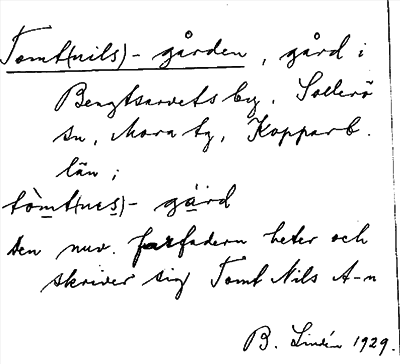 Tomt(nils)-gården, gård i
Bengtsarvets by, Sollerö
sn, Mora tg, Kopparb.
län;
tòmt(nes)-gård
den nuv. farfadern heter och
skriver sig Tomt Nils A-n
B. Lindén 1929.